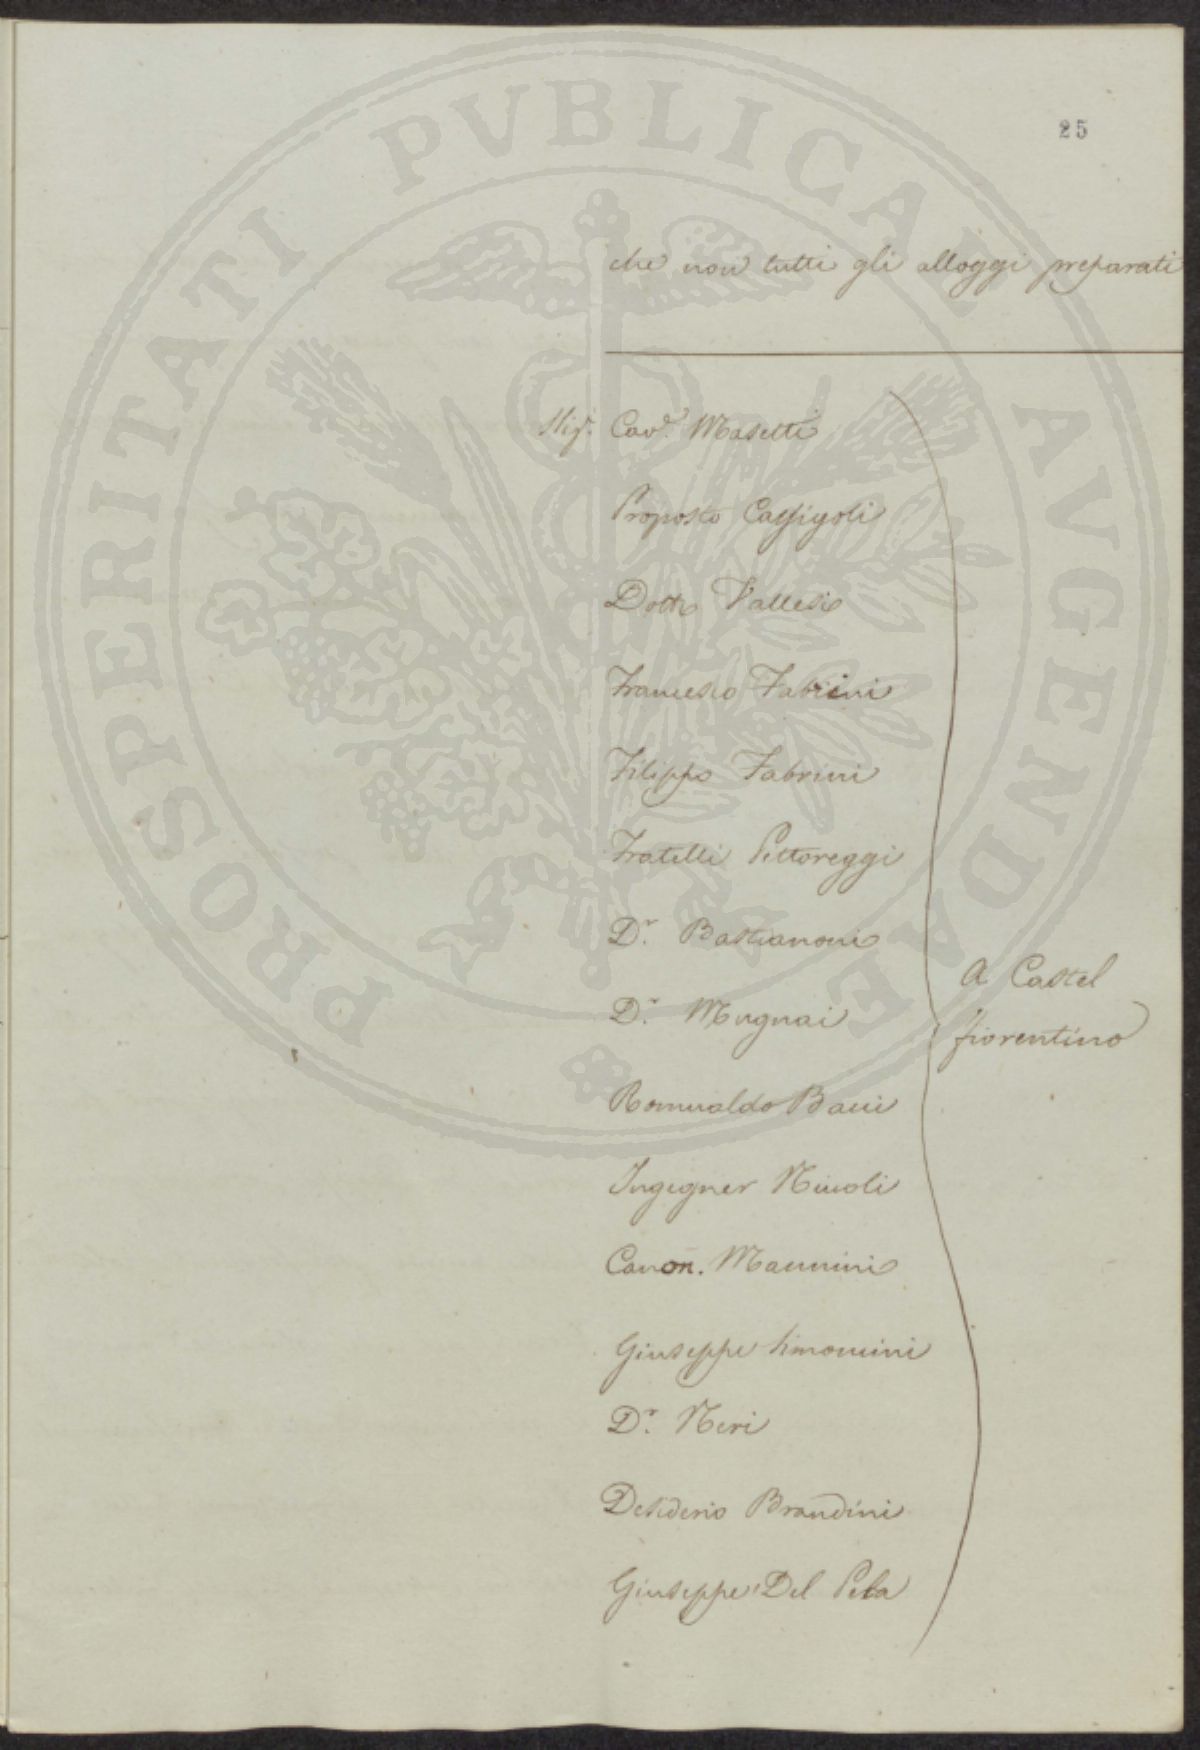 PROSPERITATI PVBLICAE AVGENDAE
25
che non tutti gli alloggi preparati
Sigr. Cavr. Masetti
Proposto Cassigoli
Dottr Vallesi
Francesco Fabrini
Filippo Fabrini
Fratelli Pettoreggi
Dr. Bastianoni
Dr. Mugnai
Romualdo Bacci
Ingegner Niccoli
Canon. Mannini
Giuseppe Simoncini
Dr. Neri
Desiderio Brandini
Giuseppe Del Pela
A Castel
fiorentino